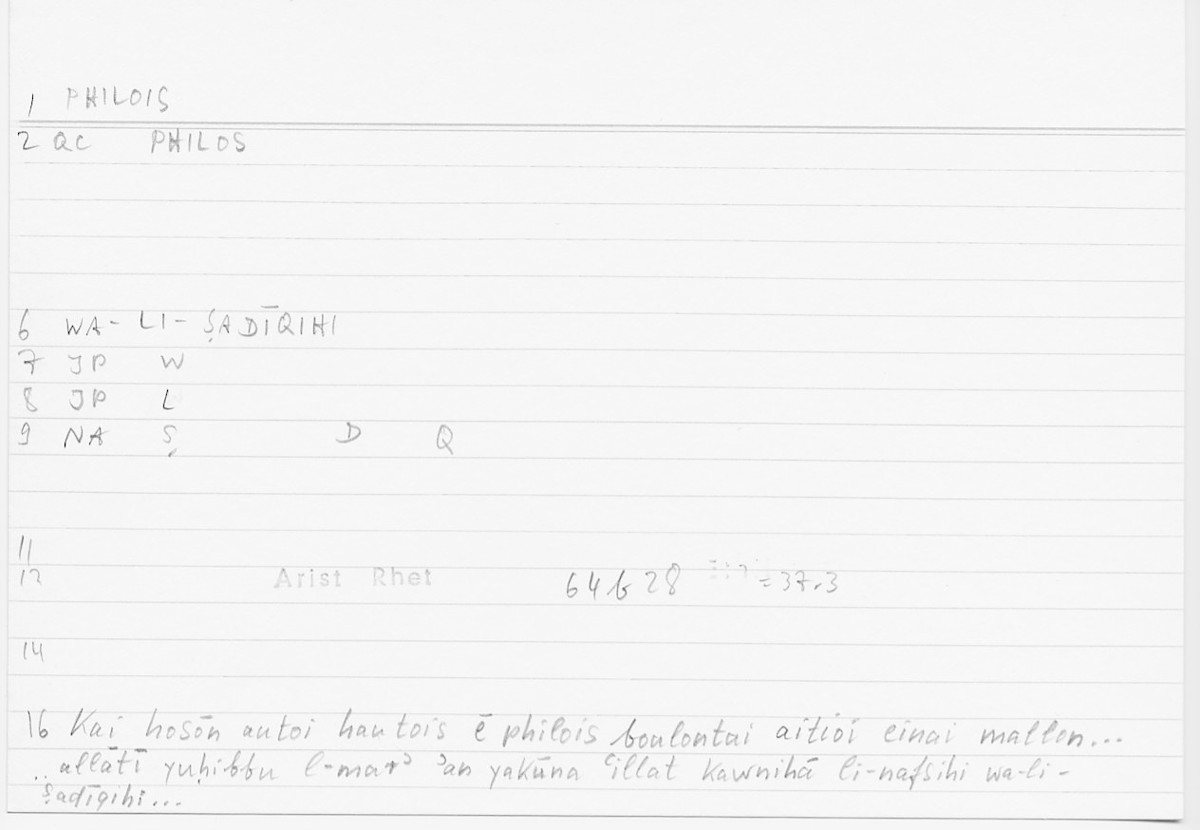 1 PHILOIS
2 QC PHILOS
6 WA- LI- ṢADĪQIHI
7 JP W
8 JP L
9 NA Ṣ D Q
11
12 Arist Rhet 64b28 =37.3
14
16 Kai hosōn autoi hautois ē philois boulontai aitioi einai mallon...
..allātī yuḥibbu l-marʾ ʾan yakūna ʿillat kawnihā li-nafsihi wa-li-
ṣadīqihi...